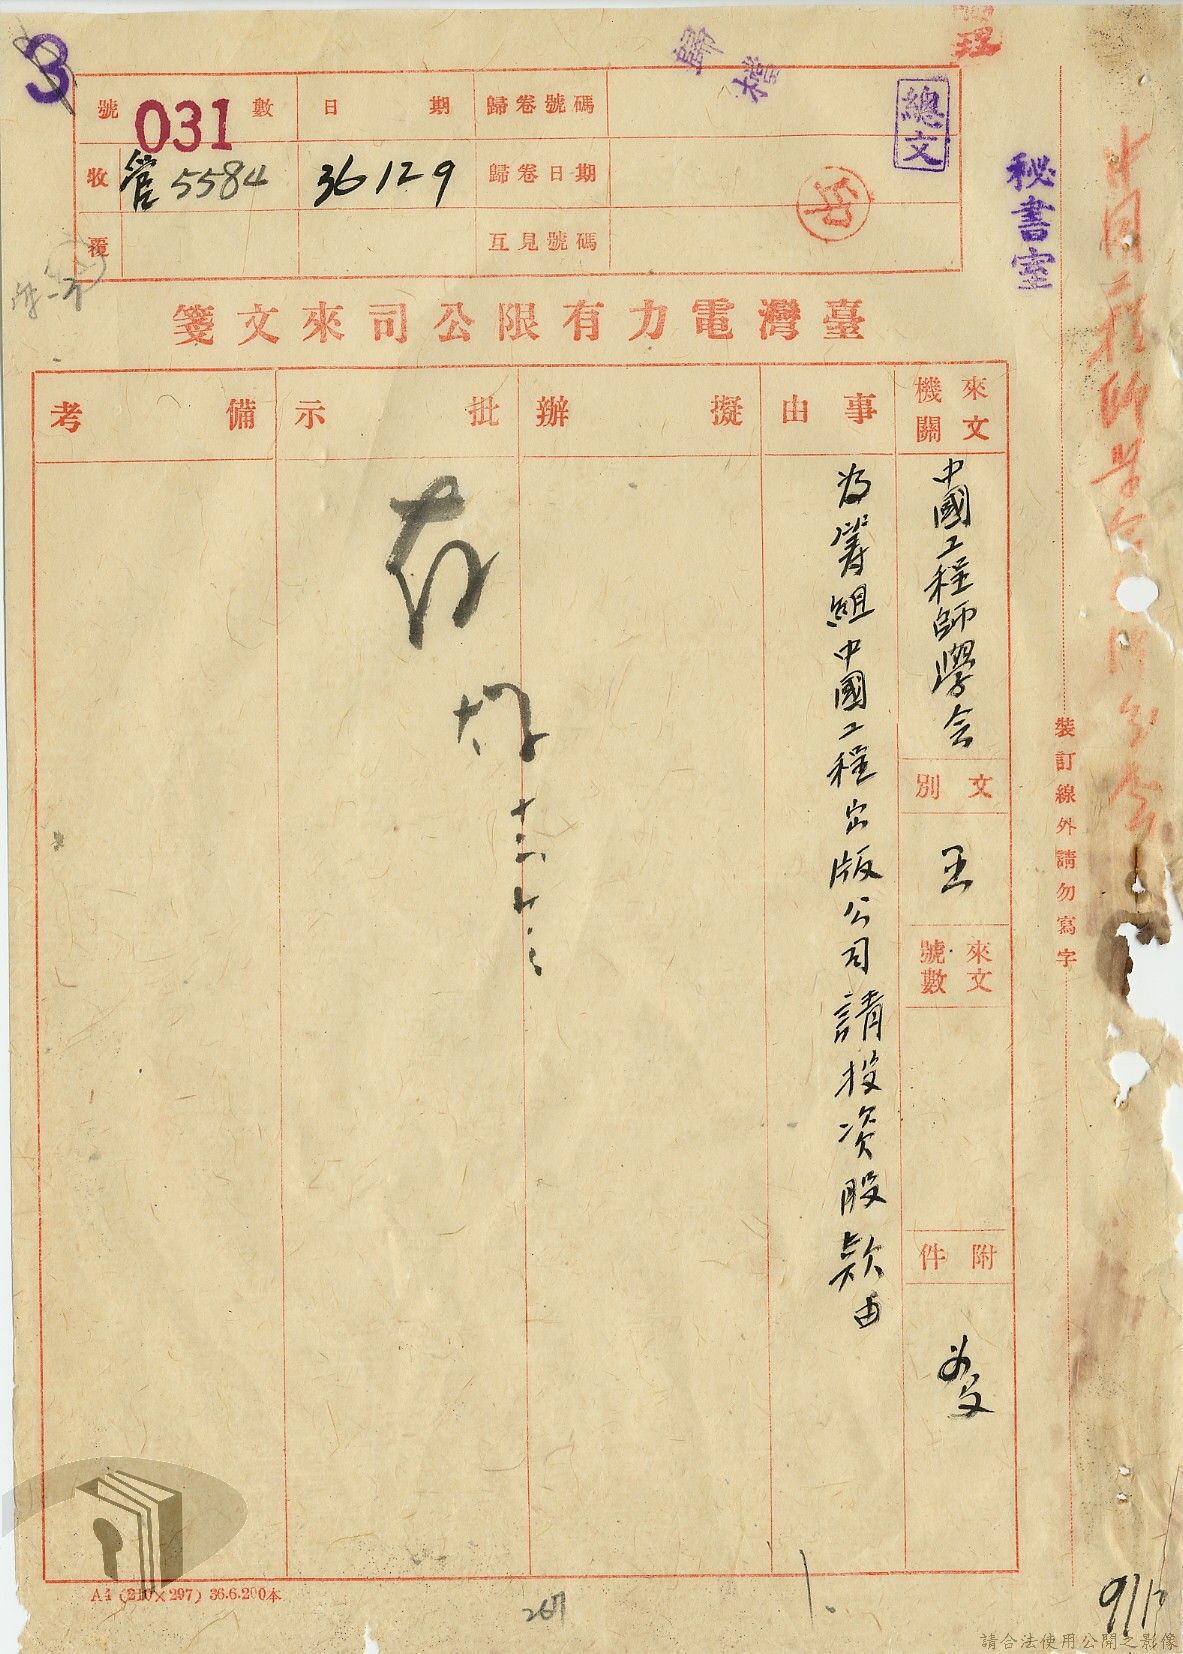 3
歸檔
理
總文
秘書室
號數 031
日期
歸卷號碼
收 管5584
36 12 9
歸卷日期
覆
互見號碼
臺灣電力有限公司來文箋
來文機關
中國工程師學会
文別
來文號數
附件
事由
為筹組中國工程出版公司請投资股款由
擬辦
批示
存
備考
中国工程師学会
裝訂線外請勿寫字
A4 (210×297) 36.6.200本
267
請合法使用公開之影像